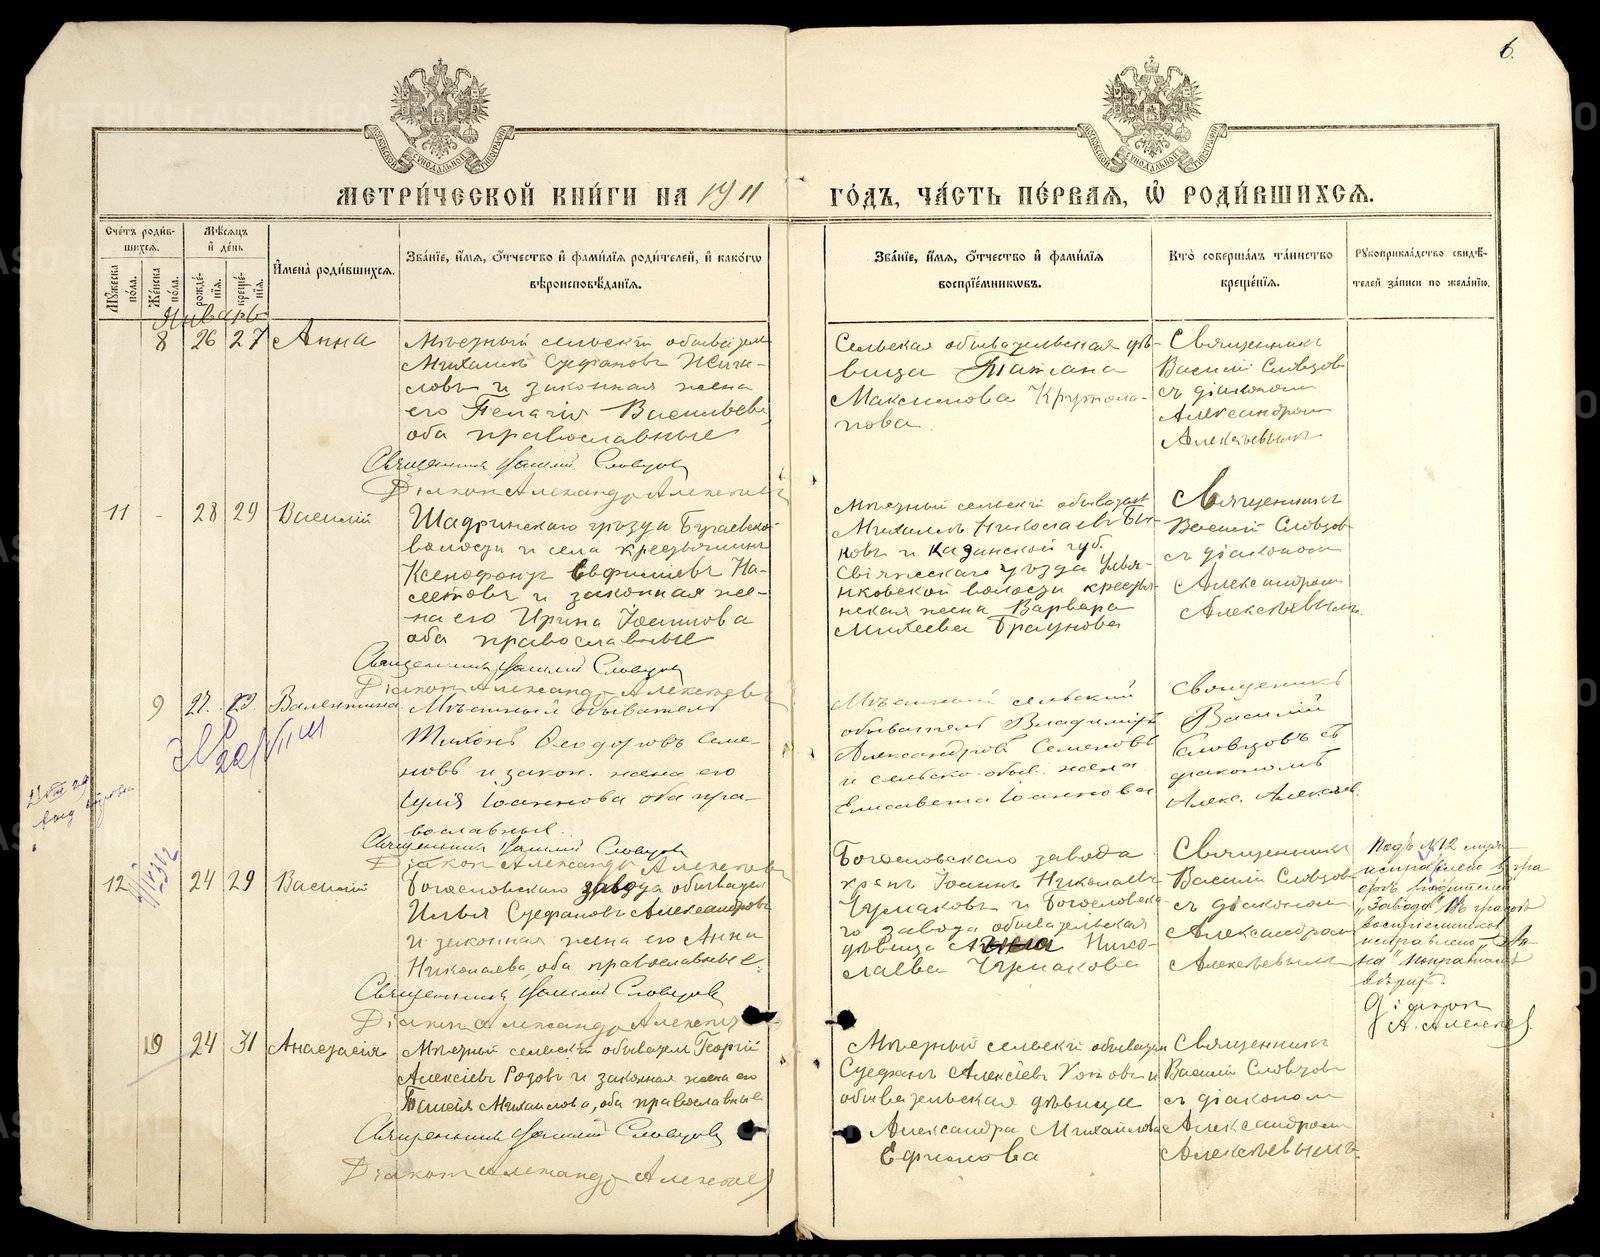 6.
МЕТРИ́ЧЕСКОЙ КНИ́ГИ НА 1911 ГО́ДЪ, ЧА́СТЬ ПЕ́РВАѦ, Ѿ РОДИ́ВШИХСѦ.
Сче́тъ роди́вшихсѧ.
Мꙋ́жеска по́ла.
Же́нска по́ла.
Мѣ́сѧцъ и҆ де́нь
рожде́нїѧ.
креще́нїѧ.
И҆мена̀ роди́вшихсѧ.
Зва́нїе, и҆́мѧ, ѻ҆́тчество и҆ фамі́лїѧ роди́телей, и҆ како́гѡ
вѣроисповѣ́данїѧ.
Зва́нїе, и҆́мѧ, ѻ҆́тчество и҆ фамі́лїѧ
воспрїе́мникѡвъ.
Кто̀ соверша́лъ та́инство
креще́нїѧ.
Рꙋкоприкла́дство свидѣ́-
телей за́писи по жела́нїю.
Январь
8 26 27 Анна
Мѣстный сельскій обыватель
Михаилъ Стефановъ
ловъ и законная жена
его Пелагія Васильева,
оба православные
Священникъ Василій Словцовъ
Діаконъ Александръ Алексѣевъ
Сельская обывательская дѣ-
вица Татіана
Максимова Крутола-
пова.
Священникъ
Василій Словцовъ
съ діакономъ
Александромъ
Алексѣевымъ
11 - 28 29 Василій
Шадринскаго уѣзда Бугаевской
волости и села крестьянинъ
Ксенофонтъ Евфиміевъ
и законная же-
на его Ирина
оба православные
Священникъ Василій Словцовъ
Діаконъ Александръ Алексѣевъ
Мѣстный сельскій обыватель
Михаилъ Николаевъ Бы-
ковъ и Казанской губ.
Свіяжскаго уѣзда Улья-
нковской волости крестья-
нская жена Варвара
Михеева Браунова
Священникъ
Василій Словцовъ
съ діакономъ
Александромъ
Алексѣевымъ
9 27. 29. Валентина
Мѣстный обыватель
Тихонъ Ѳеодоровъ Семе-
новъ и закон. жена его
Іулія Іоаннова оба пра-
вославные.
Священникъ Василій Словцовъ
Діаконъ Александръ Алексѣевъ
Мѣстный сельскій
обыватель Владиміръ
Александровъ Семеновъ
и сельско-обыв. жена
Елисавета Іоаннова
Священникъ
Василій
Словцовъ съ
діакономъ
Алекс. Алексѣев.
12 24 29 Василій
Богословскаго завода обыватель
Илья Стефановъ Александровъ
и законная жена его Анна
Николаева, оба православные.
Священникъ Василій Словцовъ
Діаконъ Александръ Алексѣевъ
Богословскаго завода
крест. Іоаннъ Николаевъ
Чумаковъ и Богословска-
го завода обывательская
дѣвица Анна Нико-
лаева Чумакова
Священникъ
Василій Словцовъ
съ діакономъ
Александромъ
Алексѣевымъ
Подъ № 12
исправлено въ гра
фѣ родителей
"Завода" Въ графѣ
воспріемниковъ
исправлено "Ан-
на" поправкамъ
вѣрить.
Діаконъ
А. Алексѣев
10 24 31 Анастасія
Мѣстный сельскій обыватель Георгій
Алексіевъ Розовъ и законная жена его
Таисія Михаилова, оба православные
Священникъ Василій Словцовъ
Діаконъ Александръ Алексѣевъ
Мѣстный сельскій обыватель
Стефанъ Алексіевъ Котовъ и
обывательская дѣвица
Александра Михаилова
Ефимова
Священникъ
Василій Словцовъ
съ діакономъ
Александромъ
Алексѣевымъ
METRIKI.GASO-URAL.RU